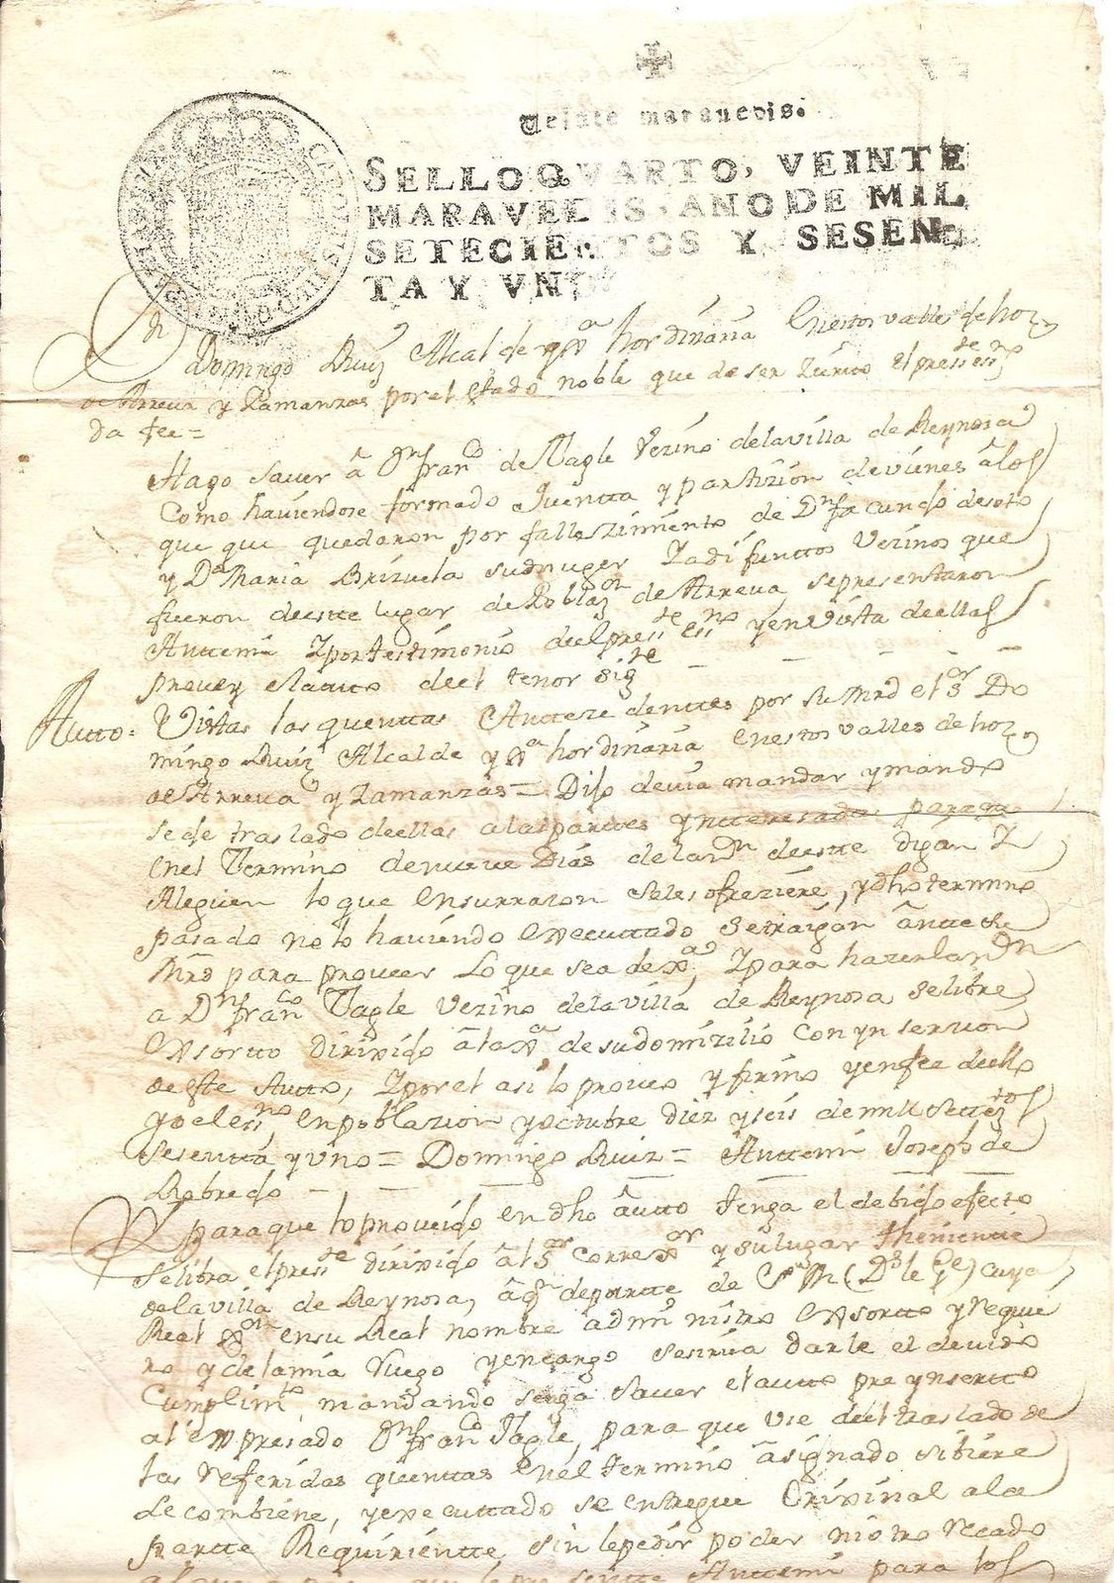 Veinte marauedis.
SELLO QVARTO, VEINTE
MARAVEDIS, AÑO DE MIL
SETECIENTOS Y SESEN-
TA Y VN
Domingo Ruiz Alcalde hordinaria Enestos valles de hoz
de Arreva y Zamanzas por el estado noble que de ser zierto el pres.te ess.no
da fee =
Hago saver â Dn fran.co de Tagle Vezino delavilla de Reynosa
Como haviendose formado quentta y partizion devienes âlos
que que quedaron por fallezimiento de Dn facundo de soto
y Da Maria Brizuela sumuger Ya difunttos Vezinos que
fueron deestte lugar de Poblaz.on de Arreva sepresentaron
Anttemi Yportestimonio deelpres.te Ess.no yenvista deellas
proveÿ elautto deel tenor sig.te
Autto = Vistas las quenttas Anttezedenttes por su Mrd el S.or Do
mingo Ruiz Alcalde y hordinaria Enestos valles de hoz
de Arreva y Zamanzas = Dijo devia mandar ymando
se de traslado deellas alaspartes ynteresadas paraque
Enel Termino denueve Dias delanon deeste digan Y
Aleguen lo que Ensurrazon seles ofreziere, ydho termino
pasado no lo haviendo Executtado setraigan ântte su
Mrd para proveer Lo que sea de Ypara hazerla
a Dn fran.co Tagle Vezino delavilla de Reynosa selibre
Exsortto dirixido âla de sudomizilio Con ynserzion
de este Autto, Yporel asi lo proveo y firmo yenfee deello
yo eless.no, Enpoblazion yoctubre diez yseis demill Settez.tos
sesentta yuno = Domingo Ruiz = Anttemi Joseph de
Robredo
Y paraque lo proveido en dho âutto tenga el debido efecto
selibra elpres.te dirixido âl S.or Correx.or y sulugar theniente
delavilla de Reynosa, âqn departte de S.M (Ds le ge) cuya
Real ensu Real nombre administro exsortto y requie
ro y delamia ruego yencargo sesirva darle el devido
Cumplim.to mandando sehaga saver elautto pre ynsertto
al expresado Dn fran.co Tagle, para que use deel traslado de
las referidas quenttas Enel termino âsignado sibiere
le combiene, yexecuttado se entregue Orixinal ala
partte Requirientte sin lepedir poder niotro recado
alguno que le presentte Anttemi para los